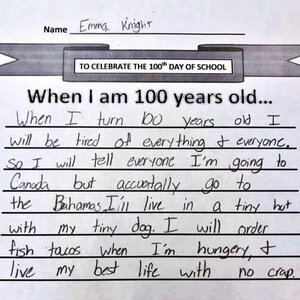 Name Emma Knight
TO CELEBRATE THE 100th DAY OF SCHOOL
When I am 100 years old...
When I turn 100 years old I
will be tired of everything & everyone.
so I will tell everyone I'm going to
Canada but accuotally go to
the Bahamas. I'ill live in a tiny hut
with my tiny dog. I will order
fish tacos when I'm hungery, &
live my best life with no crap.